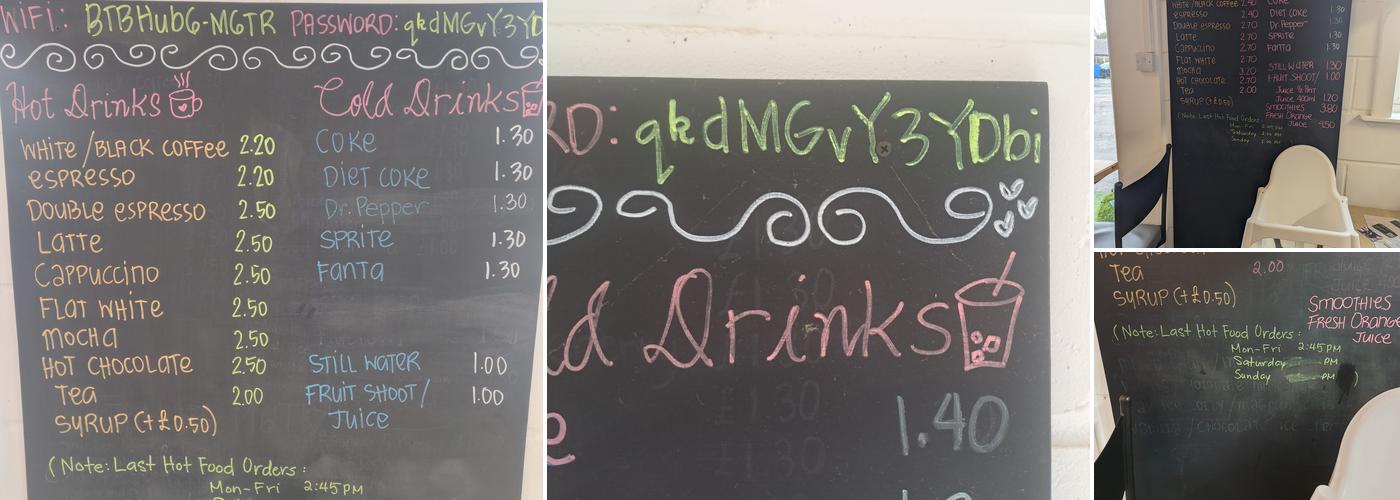 WiFi: BTBHub6-MGTR PASSWORD: qkdMGvY3YD
Hot Drinks Cold Drinks
WHITE/BLACK COFFEE 2.20 COKE 1.30
ESPRESSO 2.20 DIET COKE 1.30
DOUBLE ESPRESSO 2.50 Dr. Pepper 1.30
LATTE 2.50 SPRITE 1.30
CAPPUCCINO 2.50 FANTA 1.30
FLAT WHITE 2.50
MOCHA 2.50
HOT CHOCOLATE 2.50 STILL WATER 1.00
TEA 2.00 FRUIT SHOOT/ 1.00
SYRUP (+£0.50) JUICE
(Note: Last Hot Food Orders:
Mon-Fri 2:45PM
RD: qkdMGvY3YDbi
ld Drinks
e 1.40
WHITE/BLACK COFFEE 2.40 COKE
ESPRESSO 2.40 DIET COKE 1.30
DOUBLE ESPRESSO 2.70 Dr. Pepper 1.30
LATTE 2.70 SPRITE 1.30
CAPPUCCINO 2.70 FANTA 1.30
FLAT WHITE 2.70
MOCHA 3.20 STILL WATER 1.30
HOT CHOCOLATE 2.70 FRUIT SHOOT/ 1.00
TEA 2.00 Juice
SYRUP (+£0.50) Juice 400ml 1.20
SMOOTHIES 3.80
(Note: Last Hot Food Orders: FRESH ORANGE
Mon-Fri JUICE 4.50
Saturday
Sunday
TEA 2.00
SYRUP (+£0.50) SMOOTHIES
(Note: Last Hot Food Orders: FRESH ORANGE
Mon-Fri 2:45PM JUICE
Saturday PM
Sunday PM )